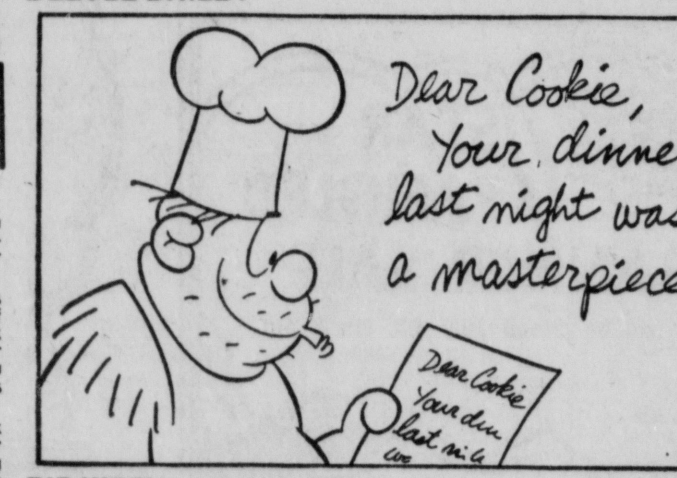 Dear Cookie,
Your dinne
last night was
a masterpiece
Dear Cookie
Your din
last